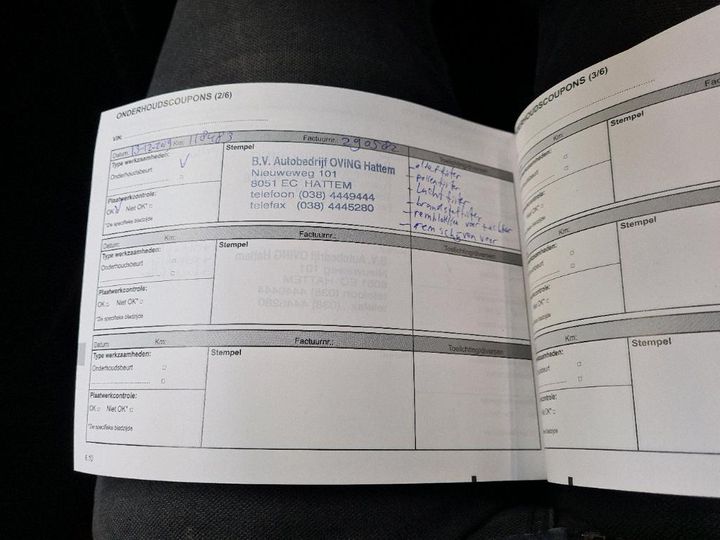 ONDERHOUDSCOUPONS (2/6)
VIN:
Datum: Km: 118483 Factuurnr.: 290582
Type werkzaamheden:
Onderhoudsbeurt
Plaatwerkcontrole:
OK Niet OK*
*De specifieke bladzijde
Stempel
B.V. Autobedrijf OVING Hattem
Nieuweweg 101
8051 EC HATTEM
telefoon (038) 4449444
telefax (038) 4445280
Toelichting/diversen
- oliefilter
- pollenfilter
- luchtfilter
- brandstoffilter
- remblokken voor + achter
- remschijven voor
Datum: Km: Factuurnr.:
Type werkzaamheden:
Onderhoudsbeurt
Plaatwerkcontrole:
OK Niet OK*
*De specifieke bladzijde
Stempel
Toelichting/diversen
Datum: Km: Factuurnr.:
Type werkzaamheden:
Onderhoudsbeurt
Plaatwerkcontrole:
OK Niet OK*
*De specifieke bladzijde
Stempel
Toelichting/diversen
6.10
DERHOUDSCOUPONS (3/6)
Km:
Stempel
Niet OK*
Km:
Stempel
Niet OK*
Km:
Stempel
Niet OK*